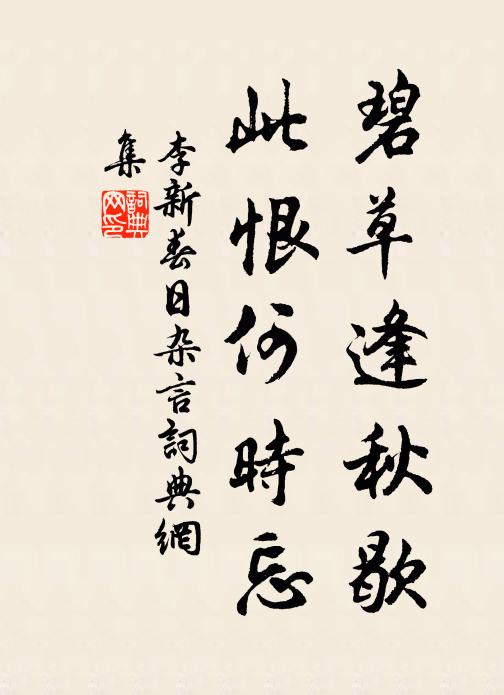 碧草逢秋歇
此恨何時忘
李新春日杂言詞典網
集
詞典
网印